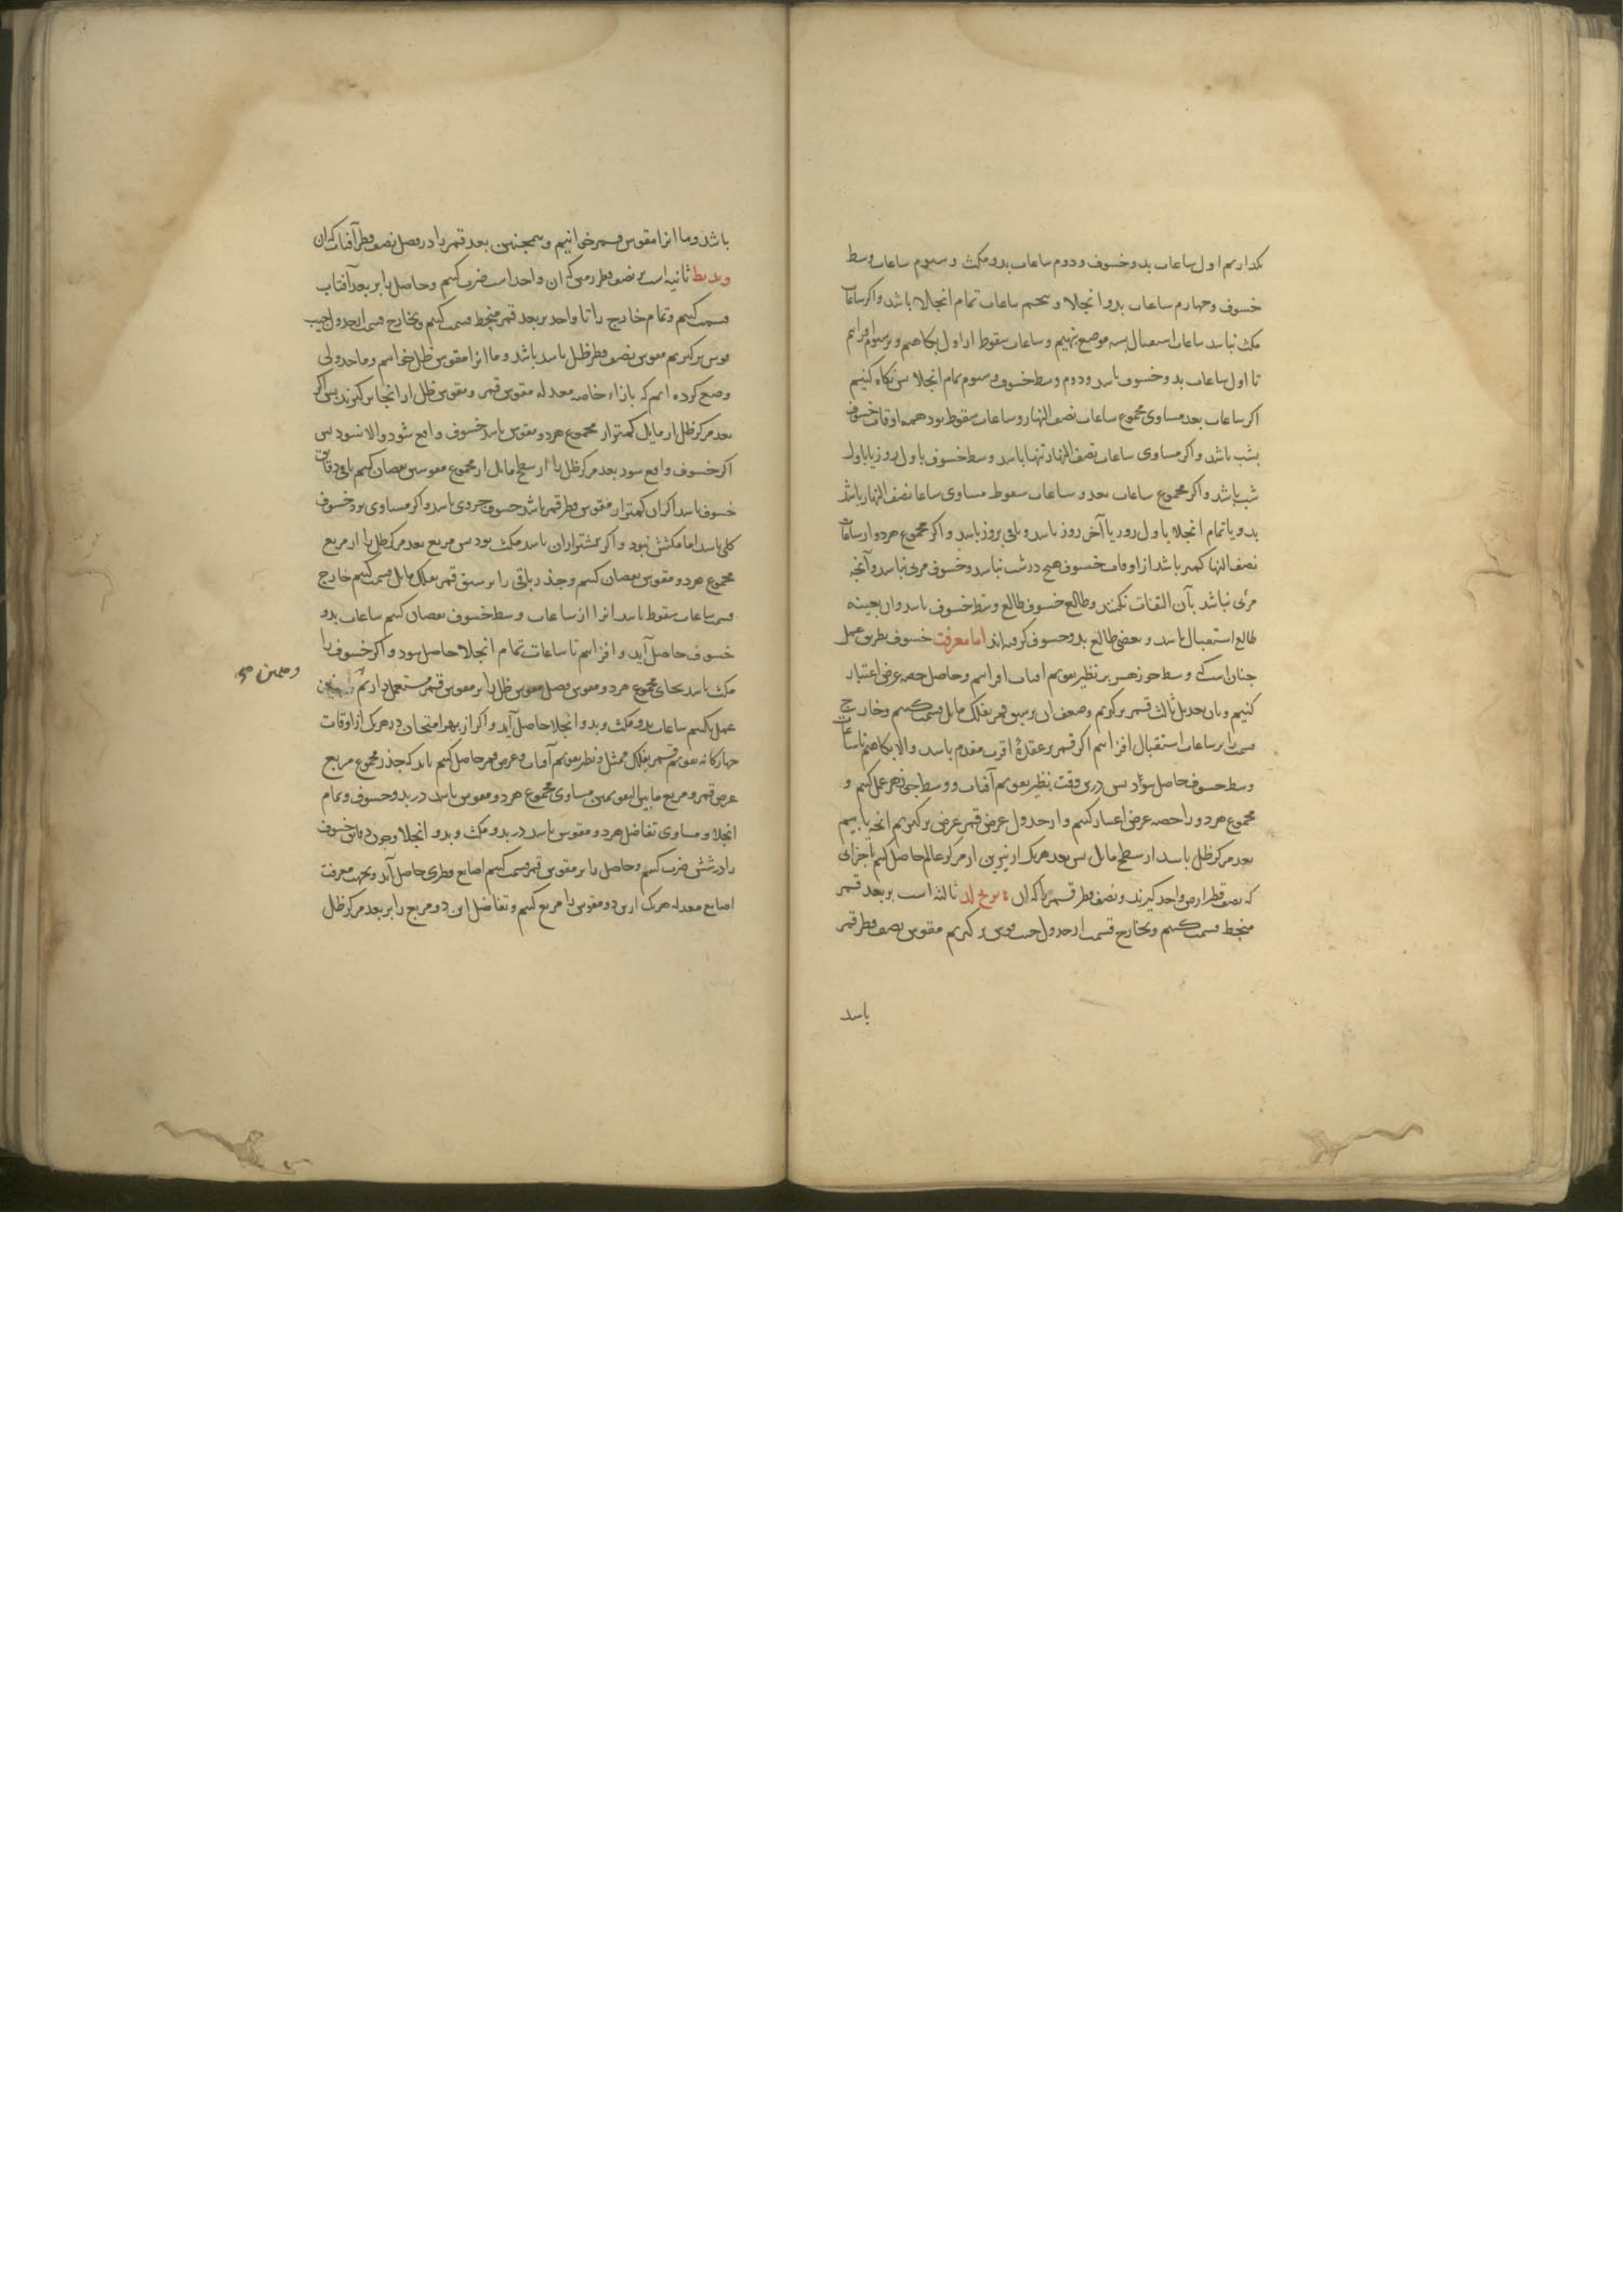 بکذاریم اول ساعات بدو خسوف و دوم ساعات بدو مکث و سیوم ساعات وسط
خسوف و چهارم ساعات بدو انجلا و پنجم ساعات تمام انجلا باشد و اکر ساعات
مکث نباشد ساعات استقبال بسه موضع بنهیم و ساعات سقوط از اول بکاهیم و بر سیوم افزاییم
تا اول ساعات بدو خسوف باشد و دوم وسط خسوف و سیوم تمام انجلا پس نکاه کنیم
اکر ساعات بعد مساوی مجموع ساعات نصف النهار و ساعات سقوط بود همه اوقات خسوف
بشب باشد و اکر مساوی ساعات نصف النهار تنها باشد وسط خسوف باول روز یا باول
شب باشد و اکر مجموع ساعات بعد و ساعات سقوط مساوی ساعات نصف النهار باشد
بدو یا تمام انجلا باول روز یا آخر روز باشد و باقی بروز باشد و اکر مجموع هر دو از ساعات
نصف النهار کمتر باشد از اوقات خسوف هیچ در شب نباشد و خسوف مرئی نباشد و آنچه
مرئی نباشد بآن التفات نکنند و طالع خسوف طالع وسط خسوف باشد و آن بعینه
طالع استقبال باشد و بعضی طالع بدو خسوف کرفته‌اند اما معرفت خسوف بطریق عمل
چنان است که وسط جوزهر بر نظیر تقویم آفتاب افزاییم و حاصل حصه عرض اعتبار
کنیم و بآن تعدیل ثالث قمر برکیریم و ضعف آن بر سبق قمر بفلک مایل قسمت کنیم و خارج
قسمت را بر ساعات استقبال افزاییم اکر قمر بر عقدهٔ اقرب مقدم باشد و الا بکاهیم تا ساعات
وسط خسوف حاصل شود پس درین وقت بنظیر تقویم آفتاب و وسط جوزهر عمل کنیم و
مجموع هر دو را حصه عرض اعتبار کنیم و از جدول عرض قمر عرض برکیریم آنچه یابیم
بعد مرکز ظل باشد از سطح مایل پس بعد هریک از نیرین از مرکز عالم حاصل کنیم باجزای
که نصف قطر ارض واحد کیرند و نصف قطر قمر را که آن ه یوخ لد ثالثه است بر بعد قمر
منحط قسمت کنیم و بخارج قسمت از جدول جیب قوس برکیریم مقوس نصف قطر قمر
باشد
باشد و ما آنرا مقوس قمر خوانیم و همچنین بعد قمر را در فصل نصف قطر آفتاب که آن
و ید یط ثانیه است بر نصف قطر زمین که آن واحد است ضرب کنیم و حاصل را بر بعد آفتاب
قسمت کنیم و تمام خارج را تا واحد بر بعد قمر منحط قسمت کنیم و بخارج قسمت از جدول جیب
قوس برکیریم مقوس نصف قطر ظل باشد و ما آنرا مقوس ظل خوانیم و ما جدولی
وضع کرده‌ایم که بازاء خاصه معدله مقوس قمر و مقوس ظل از انجا برکیرند پس اکر
بعد مرکز ظل از مایل کمتر از مجموع هر دو مقوس باشد خسوف واقع شود و الا نشود پس
اکر خسوف واقع شود بعد مرکز ظل را از سطح مایل از مجموع مقوسین نقصان کنیم باقی دقایق
خسوف باشد اکر آن کمتر از مقوس قطر قمر باشد خسوف جزوی باشد و اکر مساوی بود خسوف
کلی باشد اما مکثش نبود و اکر بیشتر از آن باشد مکث بود پس مربع بعد مرکز ظل را از مربع
مجموع هر دو مقوس نقصان کنیم و جذر باقی را بر سبق قمر بفلک مایل قسمت کنیم خارج
قسمت ساعات سقوط باشد آنرا از ساعات وسط خسوف نقصان کنیم ساعات بدو
خسوف حاصل آید و افزاییم تا ساعات تمام انجلا حاصل شود و اکر خسوف را
مکث باشد بجای مجموع هر دو مقوس فضل مقوس ظل را بر مقوس قمر مستعمل داریم
عمل بکنیم ساعات بدو مکث و بدو انجلا حاصل آید و اکر از بهر امتحان در هریک از اوقات
چهارکانه تقویم قمر بفلک ممثل و نظیر تقویم آفتاب و عرض قمر حاصل کنیم باید که جذر مجموع مربع
عرض قمر و مربع ما بین التقویمین مساوی مجموع هر دو مقوس باشد در بدو خسوف و تمام
انجلا و مساوی تفاضل هر دو مقوس باشد در بدو مکث و بدو انجلا و چون دقایق خسوف
را در شش ضرب کنیم و حاصل را بر مقوس قمر قسمت کنیم اصابع قطری حاصل آید و بجهت معرفت
اصابع معدله هریک ازین دو مقوس را مربع کنیم و تفاضل این دو مربع را بر بعد مرکز ظل